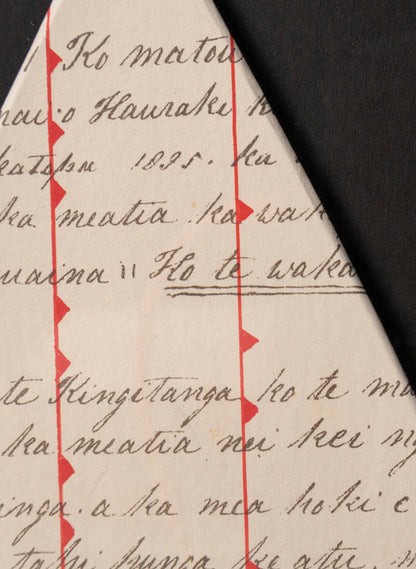 Ko matou
o Hauraki k
1835. ka
ka meatia. ka wak
uaina " Ko te waka
te Kingitanga ko te ma
ka meatia nei kei ng
inga. a ka mea hoki e
tahi hunga ke atu. n